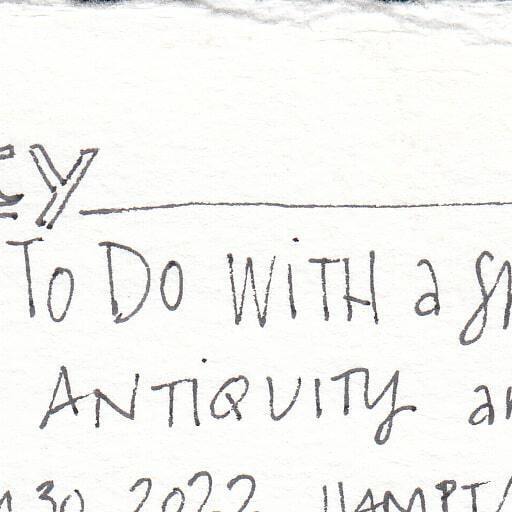 EY
To Do WiTH a
ANTiQUITY
30 2022 HAMPT